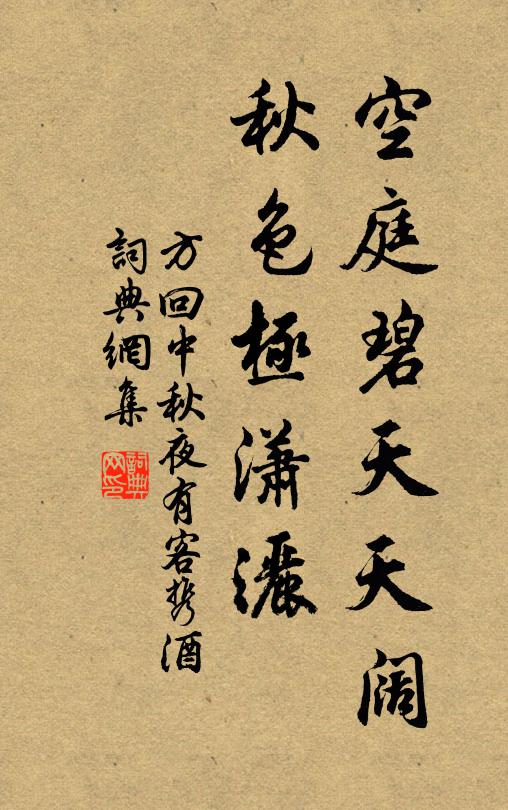 空庭碧天天阔
秋色極瀟灑
方回中秋夜有客携酒
詞典網集
詞典网印